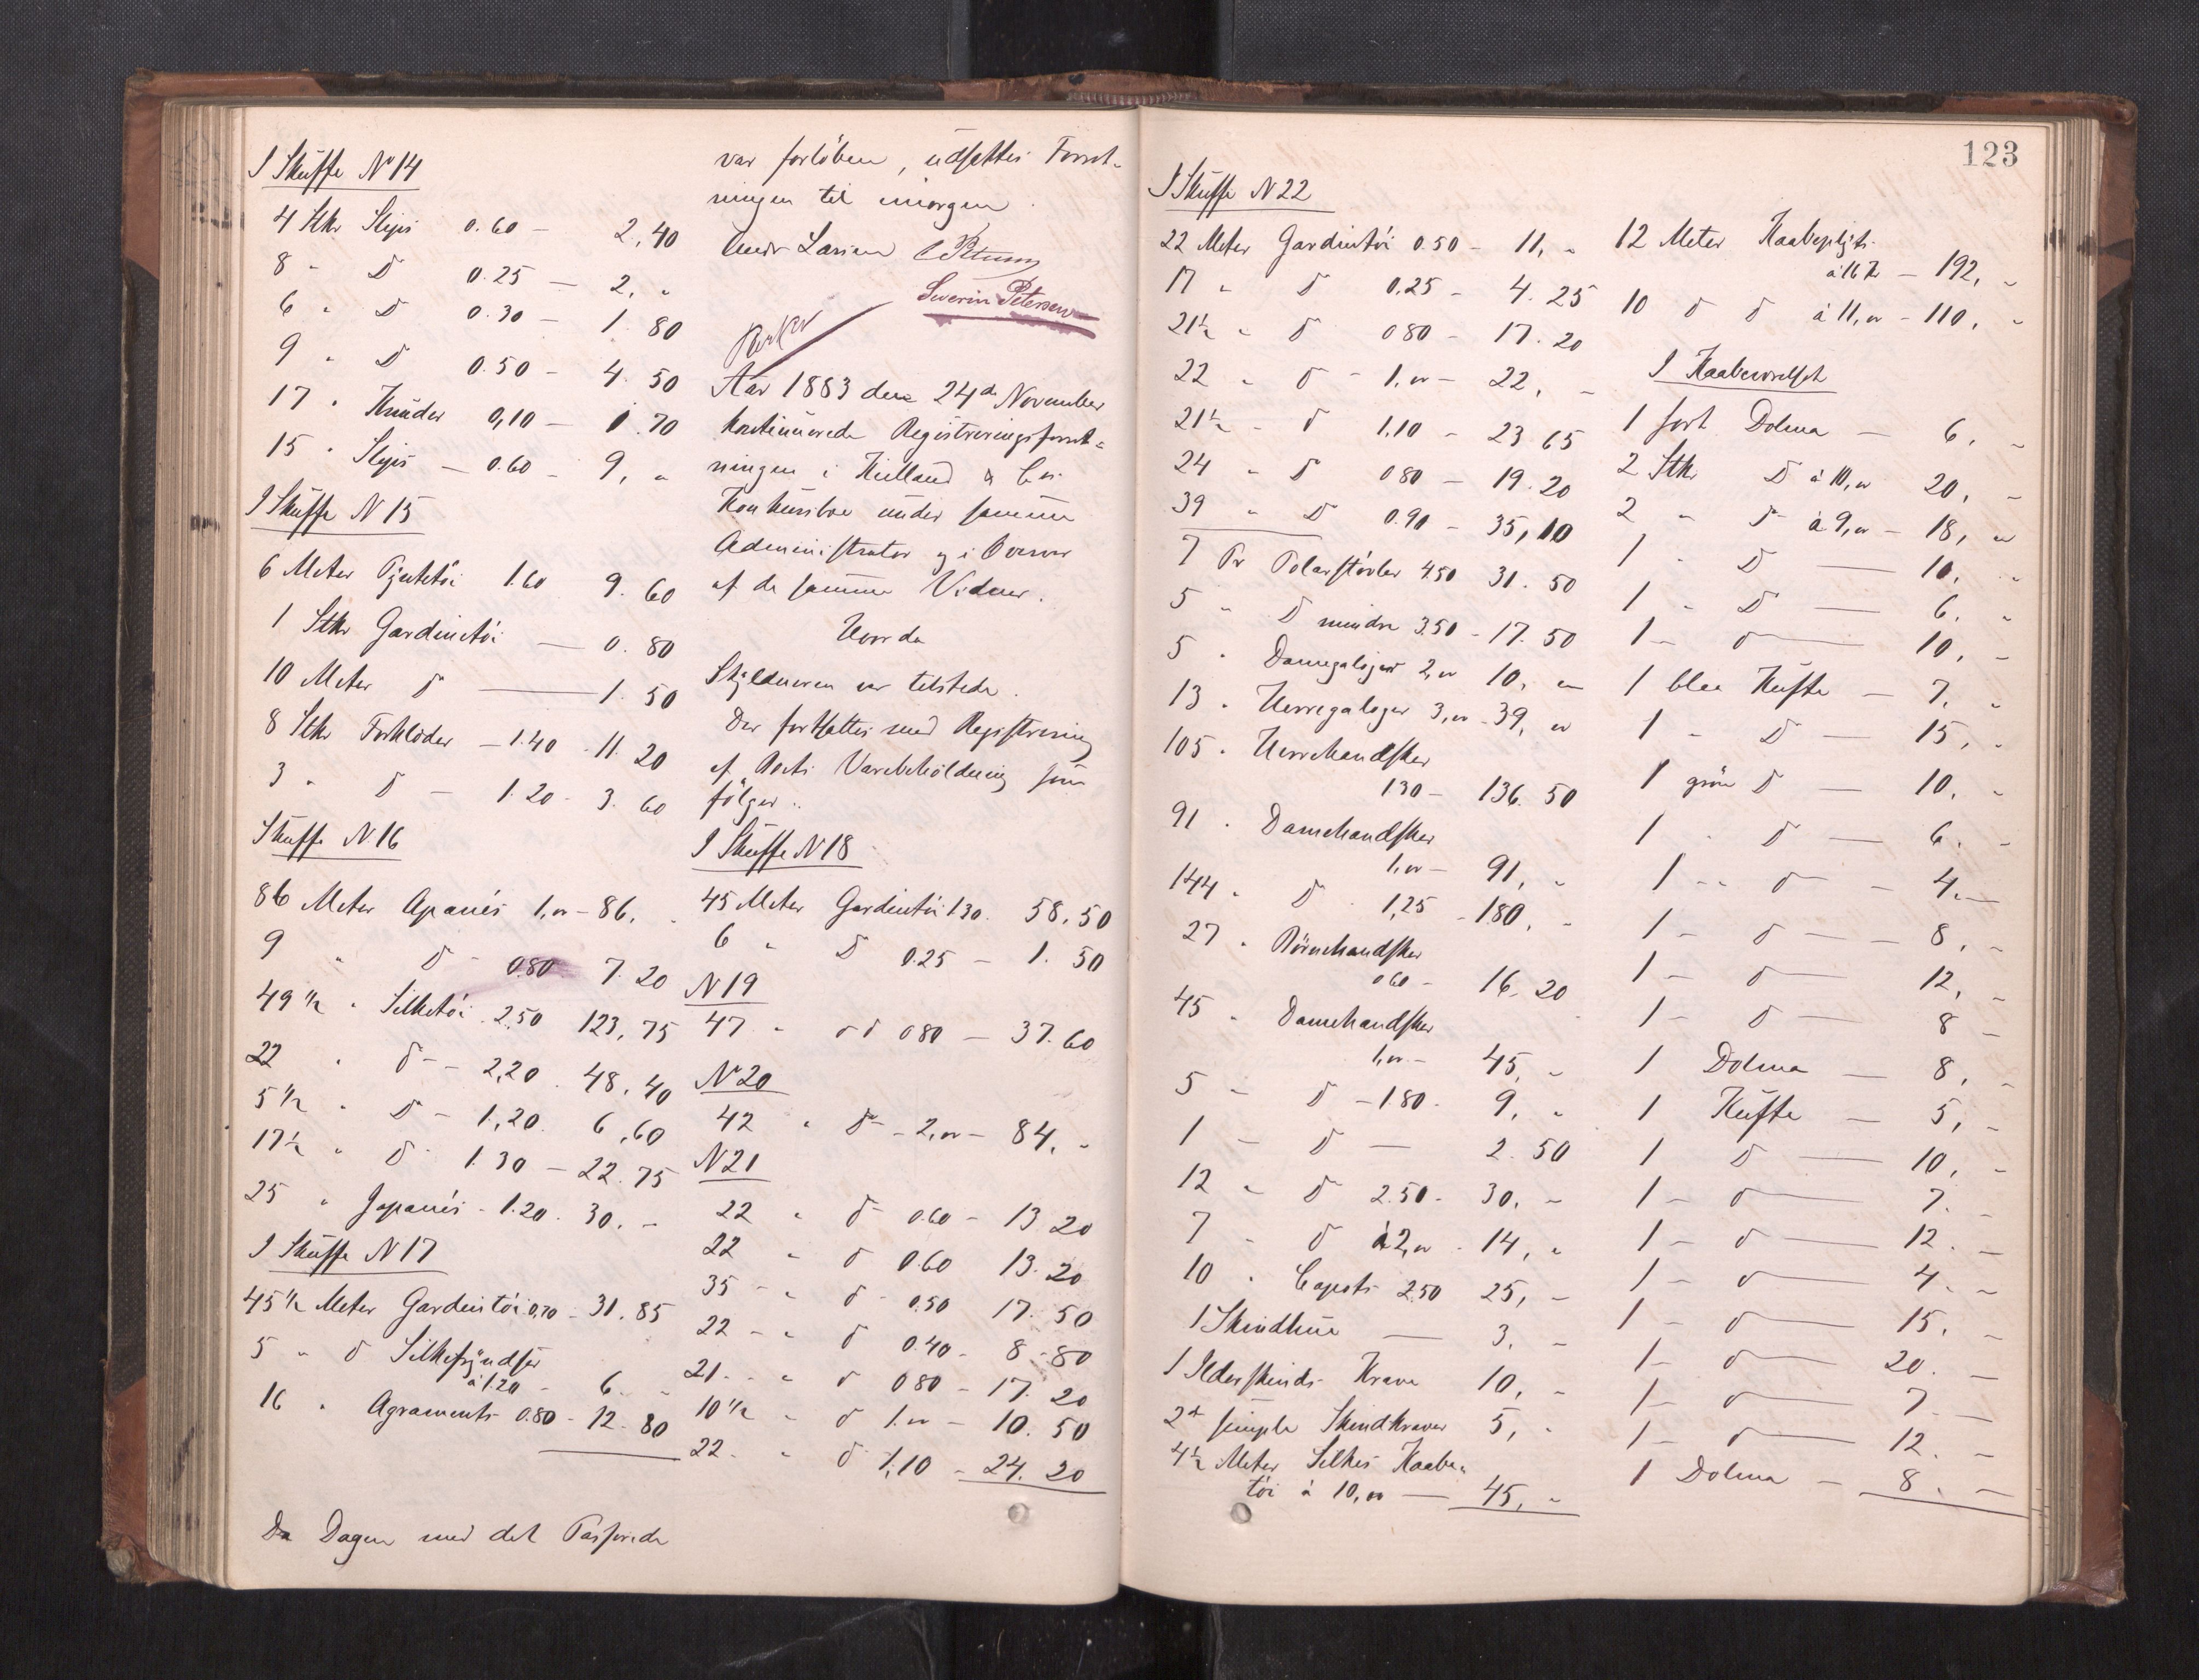 I Skuffe No 14
4 Stkr Slips 0.60 – 2,40
8 " D 0.25 – 2, "
6 " D 0.30 – 1.80
9 " D 0.50 – 4.50
17 " Knuder 0,10 – 1.70
15 " Slips – 0.60 – 9, "
I Skuffe N 15
6 Meter 1.60 9.60
1 Stkr Gardintöi – 0.80
10 Meter D – 1.50
8 Stkr Forklæder – 1.40 – 11.20
3 " D – 1.20 – 3.60
Skuffe N 16
86 Meter 1,00 – 86, "
9 " D – 0.80 7.20
49 1/2 " Silketöi 2.50 123,75
22 " D – 2,20 48,40
5 1/2 " D – 1,20 6,60
17 1/2 " D 1.30 – 22.75
25 " Japanés – 1.20 30. –
I Skuffe N 17
45 1/2 Meter Gardintöi 0,70 – 31.85
5 " D Silkefryndser
à 1.20 – 6. "
16 " Agraments 0.80 – 12.80
Da Dagen med det Passerede
var forlöben, udsattes Forret-
ningen til imorgen.
Andr Larsen
Severin Petersen
Aar 1883 den 24de November
kontinuerede Registreringsforret-
ningen i Kielland & Co's
Konkursbo under samme
Administrator og i Overvær
af de samme Vidner.
Hvorda
Skyldneren var tilstede.
Der fortsattes med Registrering
af Boets Varebeholdning som
fölger:
I Skuffe N 18
45 Meter Gardintöi 1.30 58.50
6 " D 0.25 – 1.50
N 19
47 " D D 0.80 – 37.60
No 20
42 " D – 2,00 – 84, "
N 21
22 " D 0.60 – 13.20
22 " D 0.60 13.20
35 " D 0.50 17.50
22 – " D 0.40 – 8.80
21 – " D 0.80 – 17.20
10 1/2 " D 1.00 – 10.50
22 – " D 1,10 – 24.20
123
I Skuffe N 22
22 Meter Gardintöi 0.50 – 11, "
17 " D 0.25 – 4.25
21 1/2 " D 0.80 – 17.20
22 " D – 1,00 – 22, –
21 1/2 – D 1,10 – 23.65
24 " D 0.80 – 19.20
39 " D 0.90 – 35,10
7 Pr Polarstövler 4.50 31.50
5 " D mindre 3.50 – 17.50
5 " Damegaloger 2,00 10, "
13 " Herregaloger 3,00 – 39, "
105 " Herrehandsker
1.30 – 136.50
91 " Damehandsker
1,00 – 91, "
144 " D 1,25 – 180, "
27 " Börnehandsker
0.60 – 16.20
45 " Damehandsker
1,00 – 45, "
5 – D – 1.80 – 9, "
1 – D – 2.50
12 " D 2.50 – 30, –
7 – D à 2,00 – 14, "
10 " Capots 2.50 25, –
1 Skindhue – 3, –
1 Ilderskinds Krave 10, –
2 D simple Skindkraver 5, "
4 1/2 Meter Silkes Kaabe-
töi à 10,00 – 45, "
12 Meter Kaabeplyds
à 16 Kr – 192, "
10 D D à 11,00 – 110, "
I Kaabeværelset
1 sort Dolma – 6, "
2 Stk D à 10,00 20, –
2 " D à 9,00 – 18, "
1 " D – 10, "
1 " D – 6, "
1 – D – 10, –
1 blaa Kufte – 7, "
1 – D – 15, "
1 grön D – 10, "
1 " D – 6. –
1 " D – 4. –
1 – D – 8, –
1 – D – 12, –
1 – D – 8 –
1 Dolma – 8, –
1 Kufte – 5, –
1 D – 10, –
1 – D – 7. –
1 – D – 12. –
1 – D – 4. –
1 – D – 15. –
1 – D – 20. –
1 – D – 7. –
1 – D – 12. –
1 Dolma – 8. –